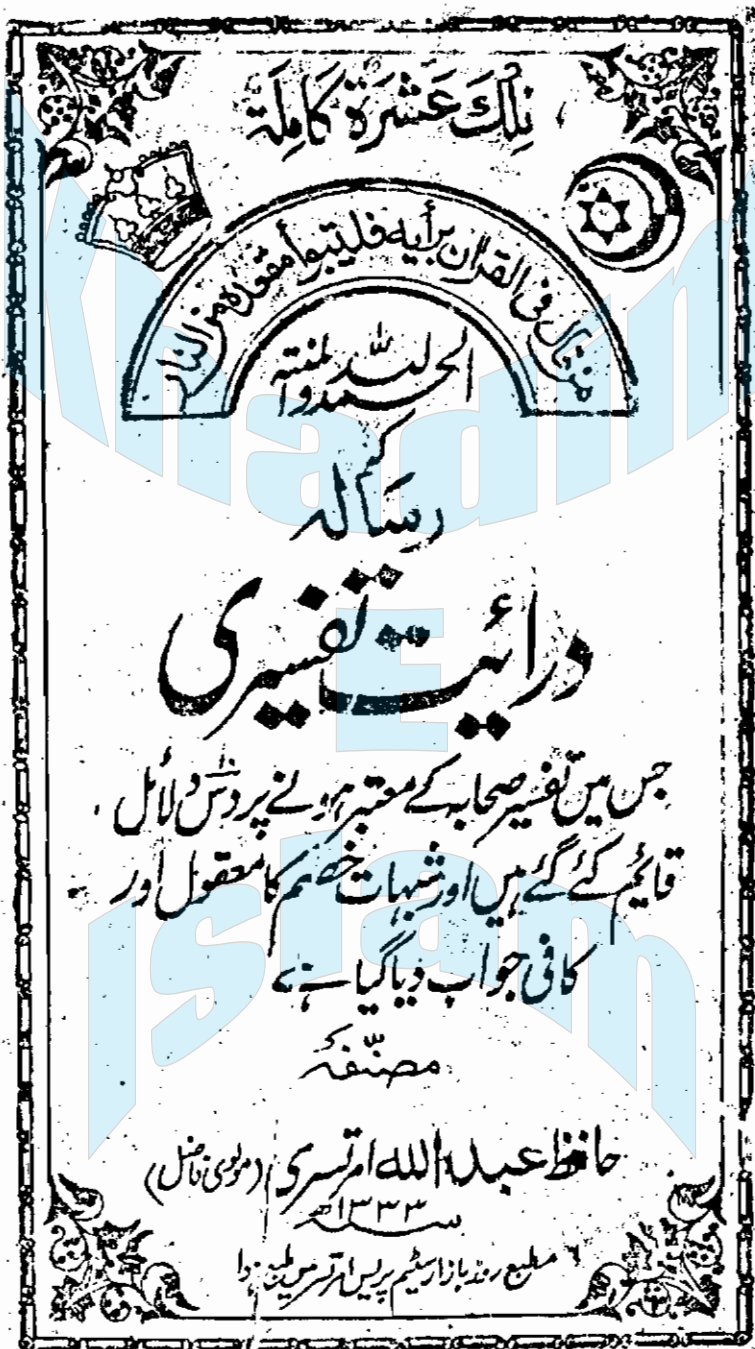 تِلْكَ عَشَرَةٌ كَامِلَةٌ
من قال فى القرآن برأيه فليتبوأ مقعده من النار
الحمد لله والمنته
کہ
رسالہ
درائیت تفسیری
جس میں تفسیر صحابہ کے معتبر ہونے پر دس دلائل
قائم کئے گئے ہیں اور شبہات خصم کا معقول اور
کافی جواب دیا گیا ہے
مصنّفہٗ
حافظ عبد الله امرتسری (مولوی فاضل)
سنہ ۱۳۳۳ھ
مطبع روز بازار سٹیم پریس امرتسر میں
Khadim
E
Islam